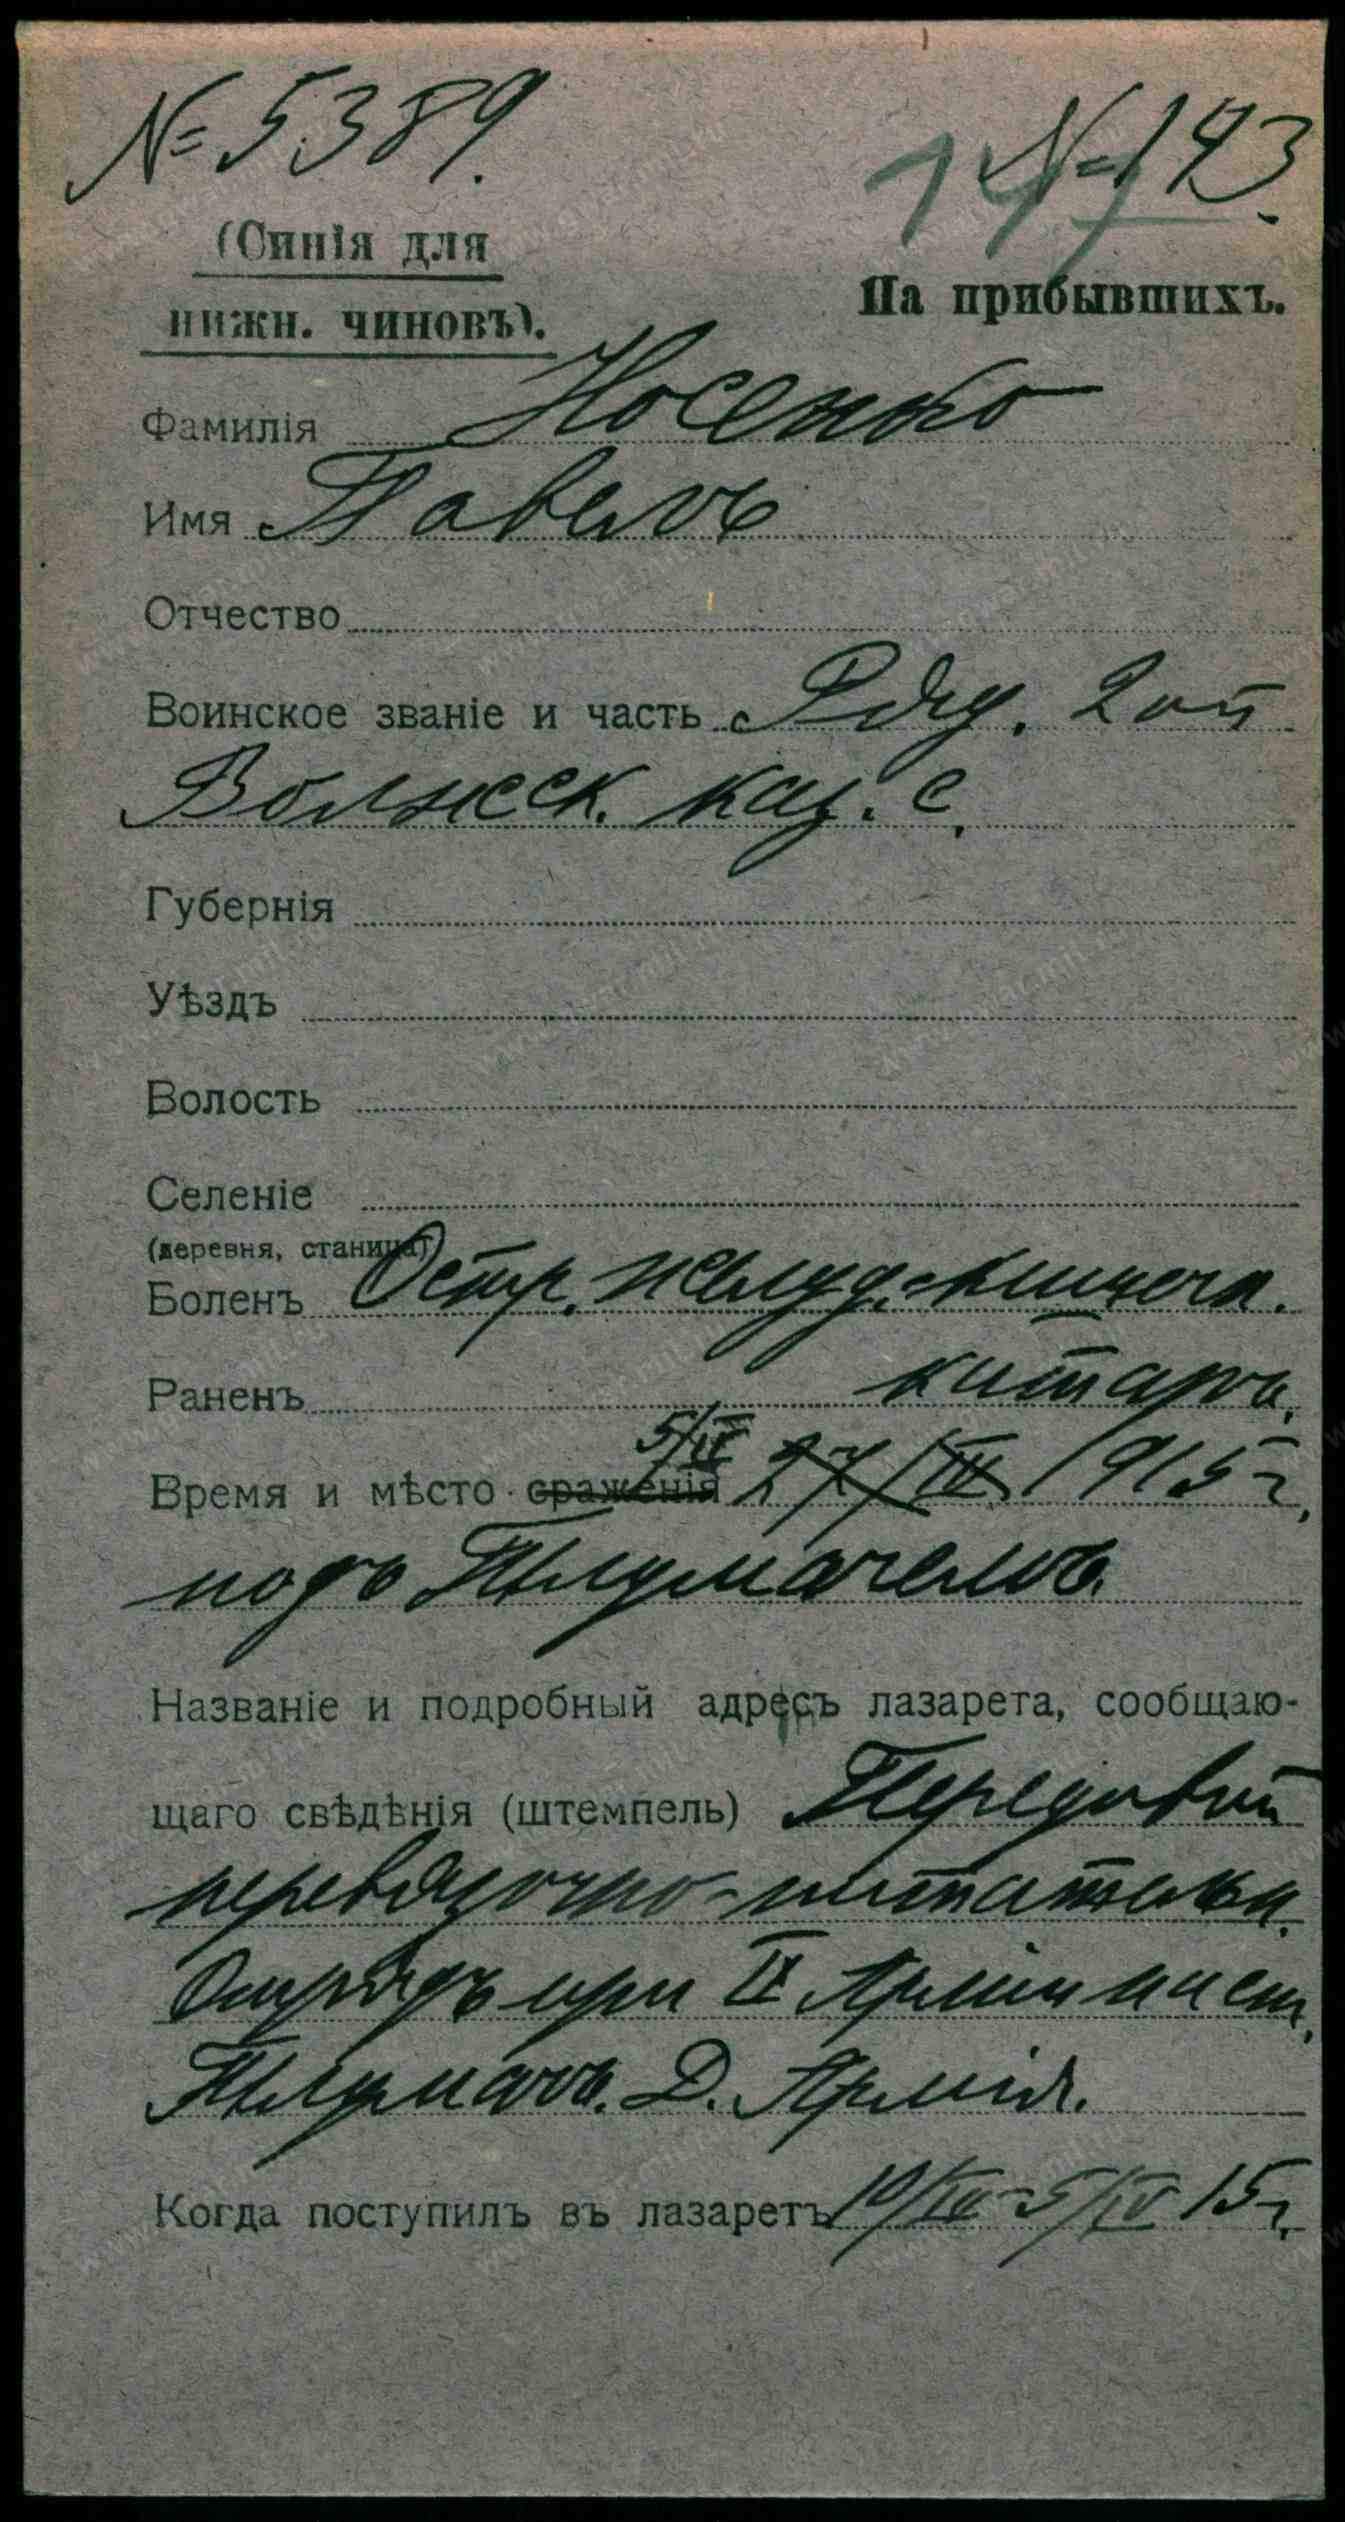 № 5389. № 143.
147
(Синія для
нижн. чиновъ). На прибывшихъ.
Фамилія Носенко
Имя Павелъ
Отчество
Воинское званіе и часть Ряд. 2ой
Волжск. каз. с.
Губернія
Уѣздъ
Волость
Селеніе
(деревня, станица)
Боленъ Остр. желуд.-кишечн.
Раненъ катарръ.
5/IV
Время и мѣсто сраженія 27/III 1915 г.
подъ Тлумачемъ.
Названіе и подробный адресъ лазарета, сообщаю-
щаго свѣдѣнія (штемпель) Передовой
перевязочно-питательн.
Отрядъ при IX Арміи мист.
Тлумачъ. Д. Армія.
Когда поступилъ въ лазаретъ 10/IV 5/IV 15 г.